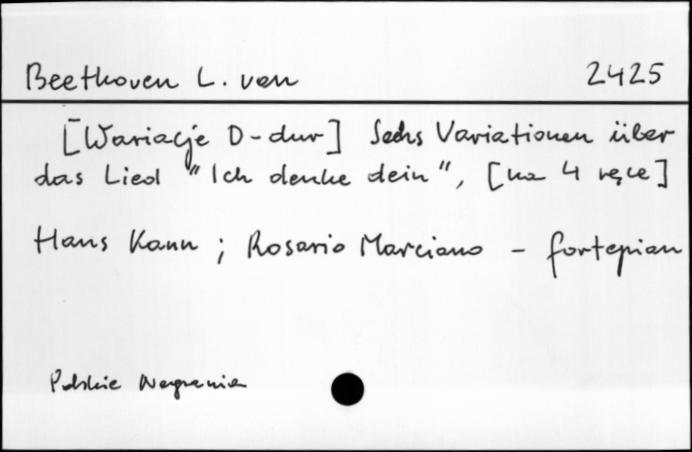 Beethoven L. van 2425
[Wariacje D-dur] Sechs Variationen über
das Lied "Ich denke dein", [na 4 ręce]
Hans Kann ; Rosario Marciano - fortepian
Polskie Nagrania